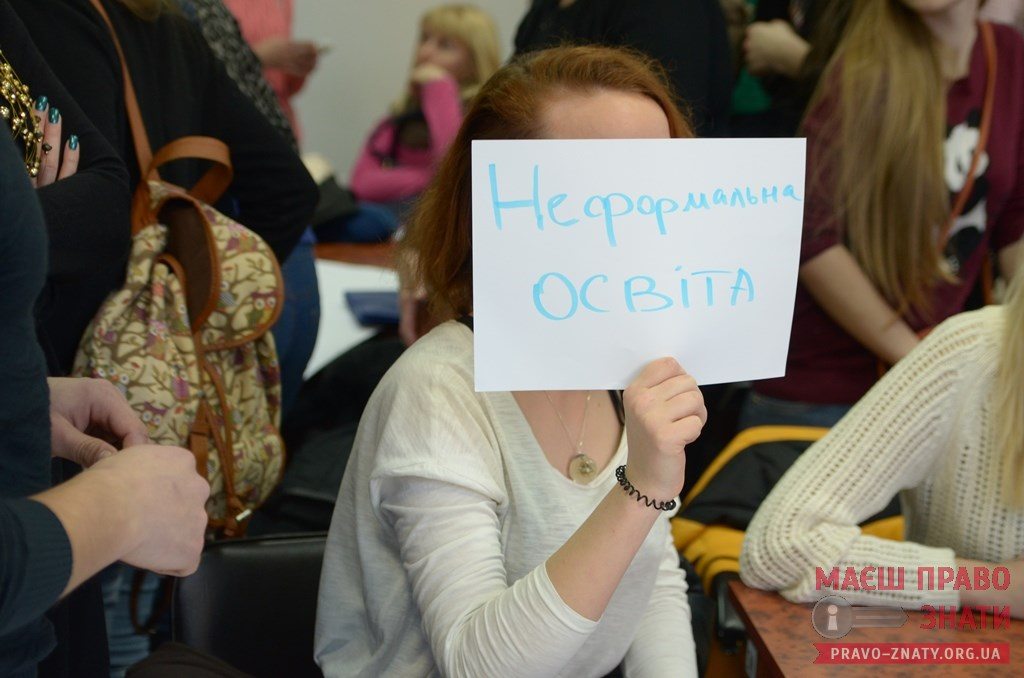 Неформальна
освіта
МАЄШ ПРАВО
ЗНАТИ
PRAVO-ZNATY.ORG.UA